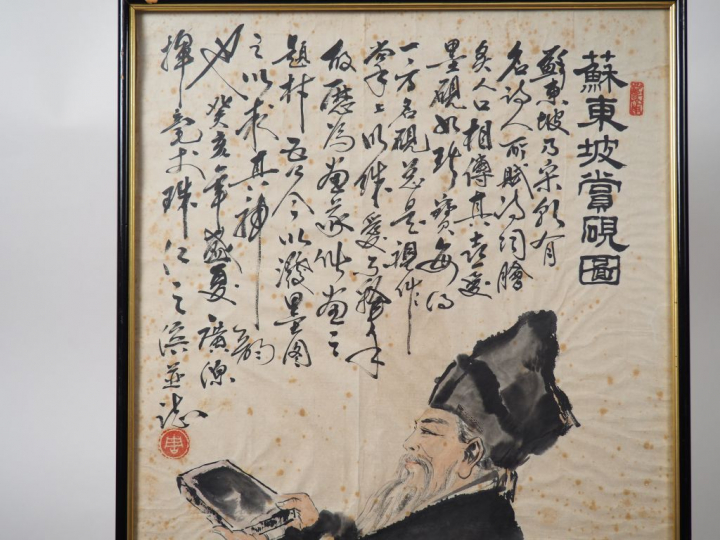 蘇東坡賞硯圖
蘇東坡乃宋代有
名詩人所賦詩詞膾
炙人口相傳其喜愛
墨硯如珠寶每得
一方名硯总是視作
掌上明珠愛
故歷為画家作画之
題材 今以潑墨图
之以求其神韵
也癸亥年盛夏廣源
揮毫於珠江之滨並誌